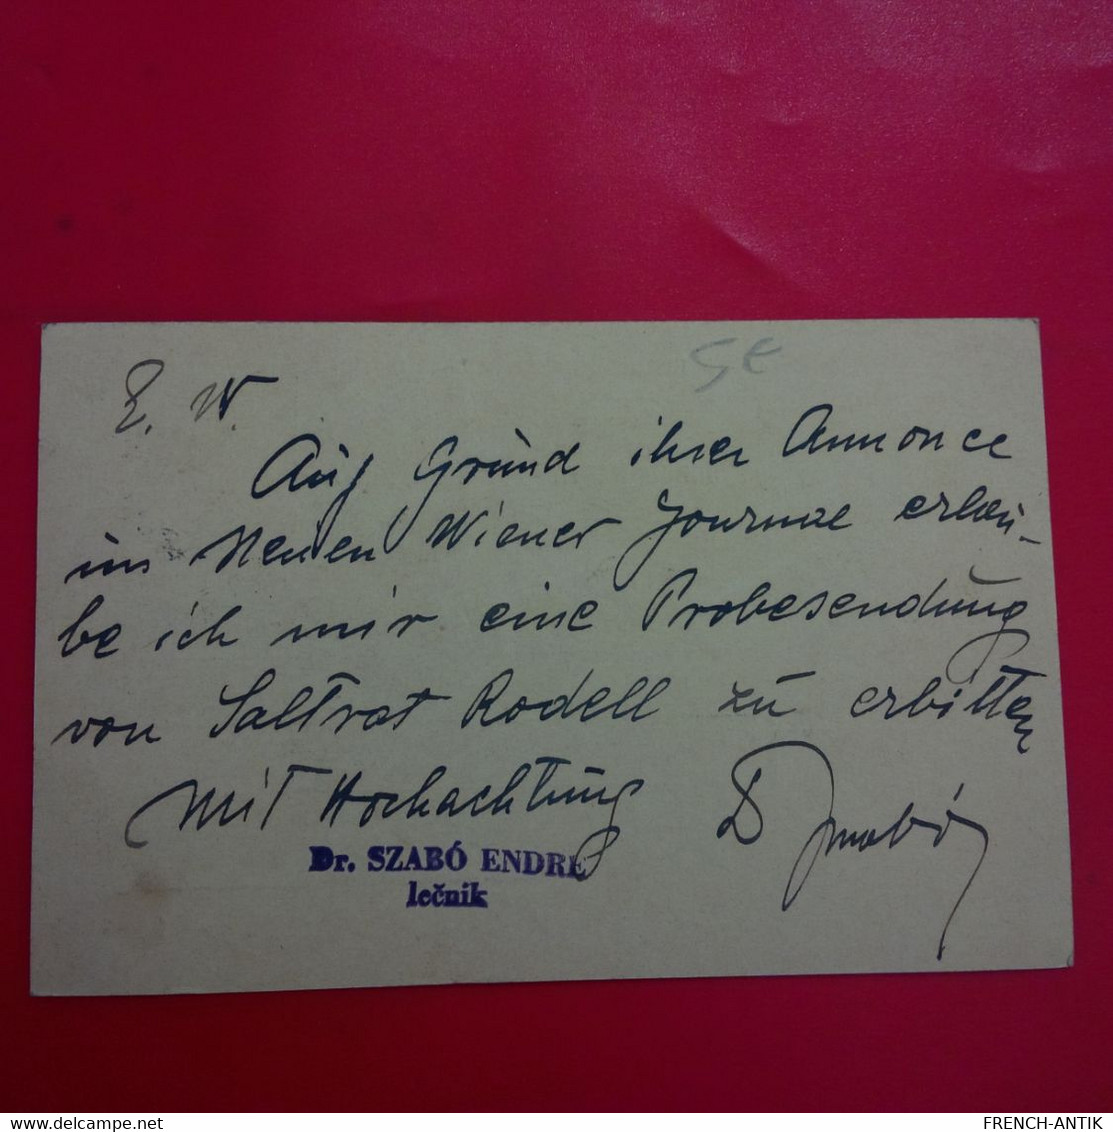 5€
E. W.
Auf Grund ihrer Annonce
im Neuen Wiener Journal erlau-
be ich mir eine Probesendung
von Saltrat Rodell zu erbitten
Mit Hochachtung Dr Szabó
Dr. SZABÓ ENDRE
lečnik
FRENCH-ANTIK